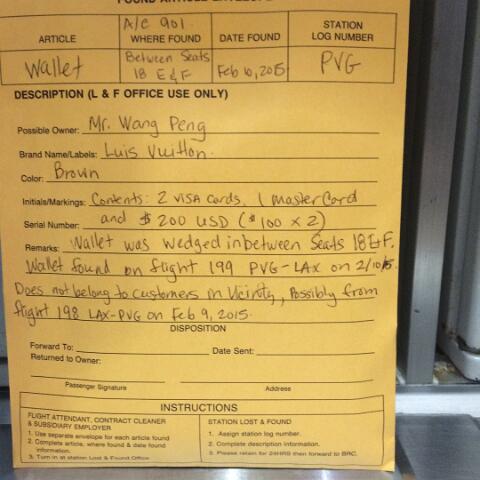 FOUND ARTICLE ENVELOPE
ARTICLE
A/C 901.
WHERE FOUND
DATE FOUND
STATION
LOG NUMBER
Wallet
Between Seats
18 E & F
Feb 10, 2015
PVG
DESCRIPTION (L & F OFFICE USE ONLY)
Possible Owner: Mr. Wang Peng
Brand Name/Labels: Luis Vuitton.
Color: Brown
Initials/Markings: Contents: 2 VISA cards, 1 master Card
Serial Number: and $200 USD ($100 x 2)
Remarks: Wallet was wedged inbetween Seats 18 E & F.
Wallet found on flight 199 PVG-LAX on 2/10/15.
Does not belong to customers in Vicinity, Possibly from
flight 198 LAX-PVG on Feb 9, 2015.
DISPOSITION
Forward To:
Date Sent:
Returned to Owner:
Passenger Signature
Address
INSTRUCTIONS
FLIGHT ATTENDANT, CONTRACT CLEANER
& SUBSIDIARY EMPLOYER
1. Use separate envelope for each article found
2. Complete article, where found & date found
information.
3. Turn in at station Lost & Found Office
STATION LOST & FOUND
1. Assign station log number.
2. Complete description information.
3. Please retain for 24HRS then forward to BRC.